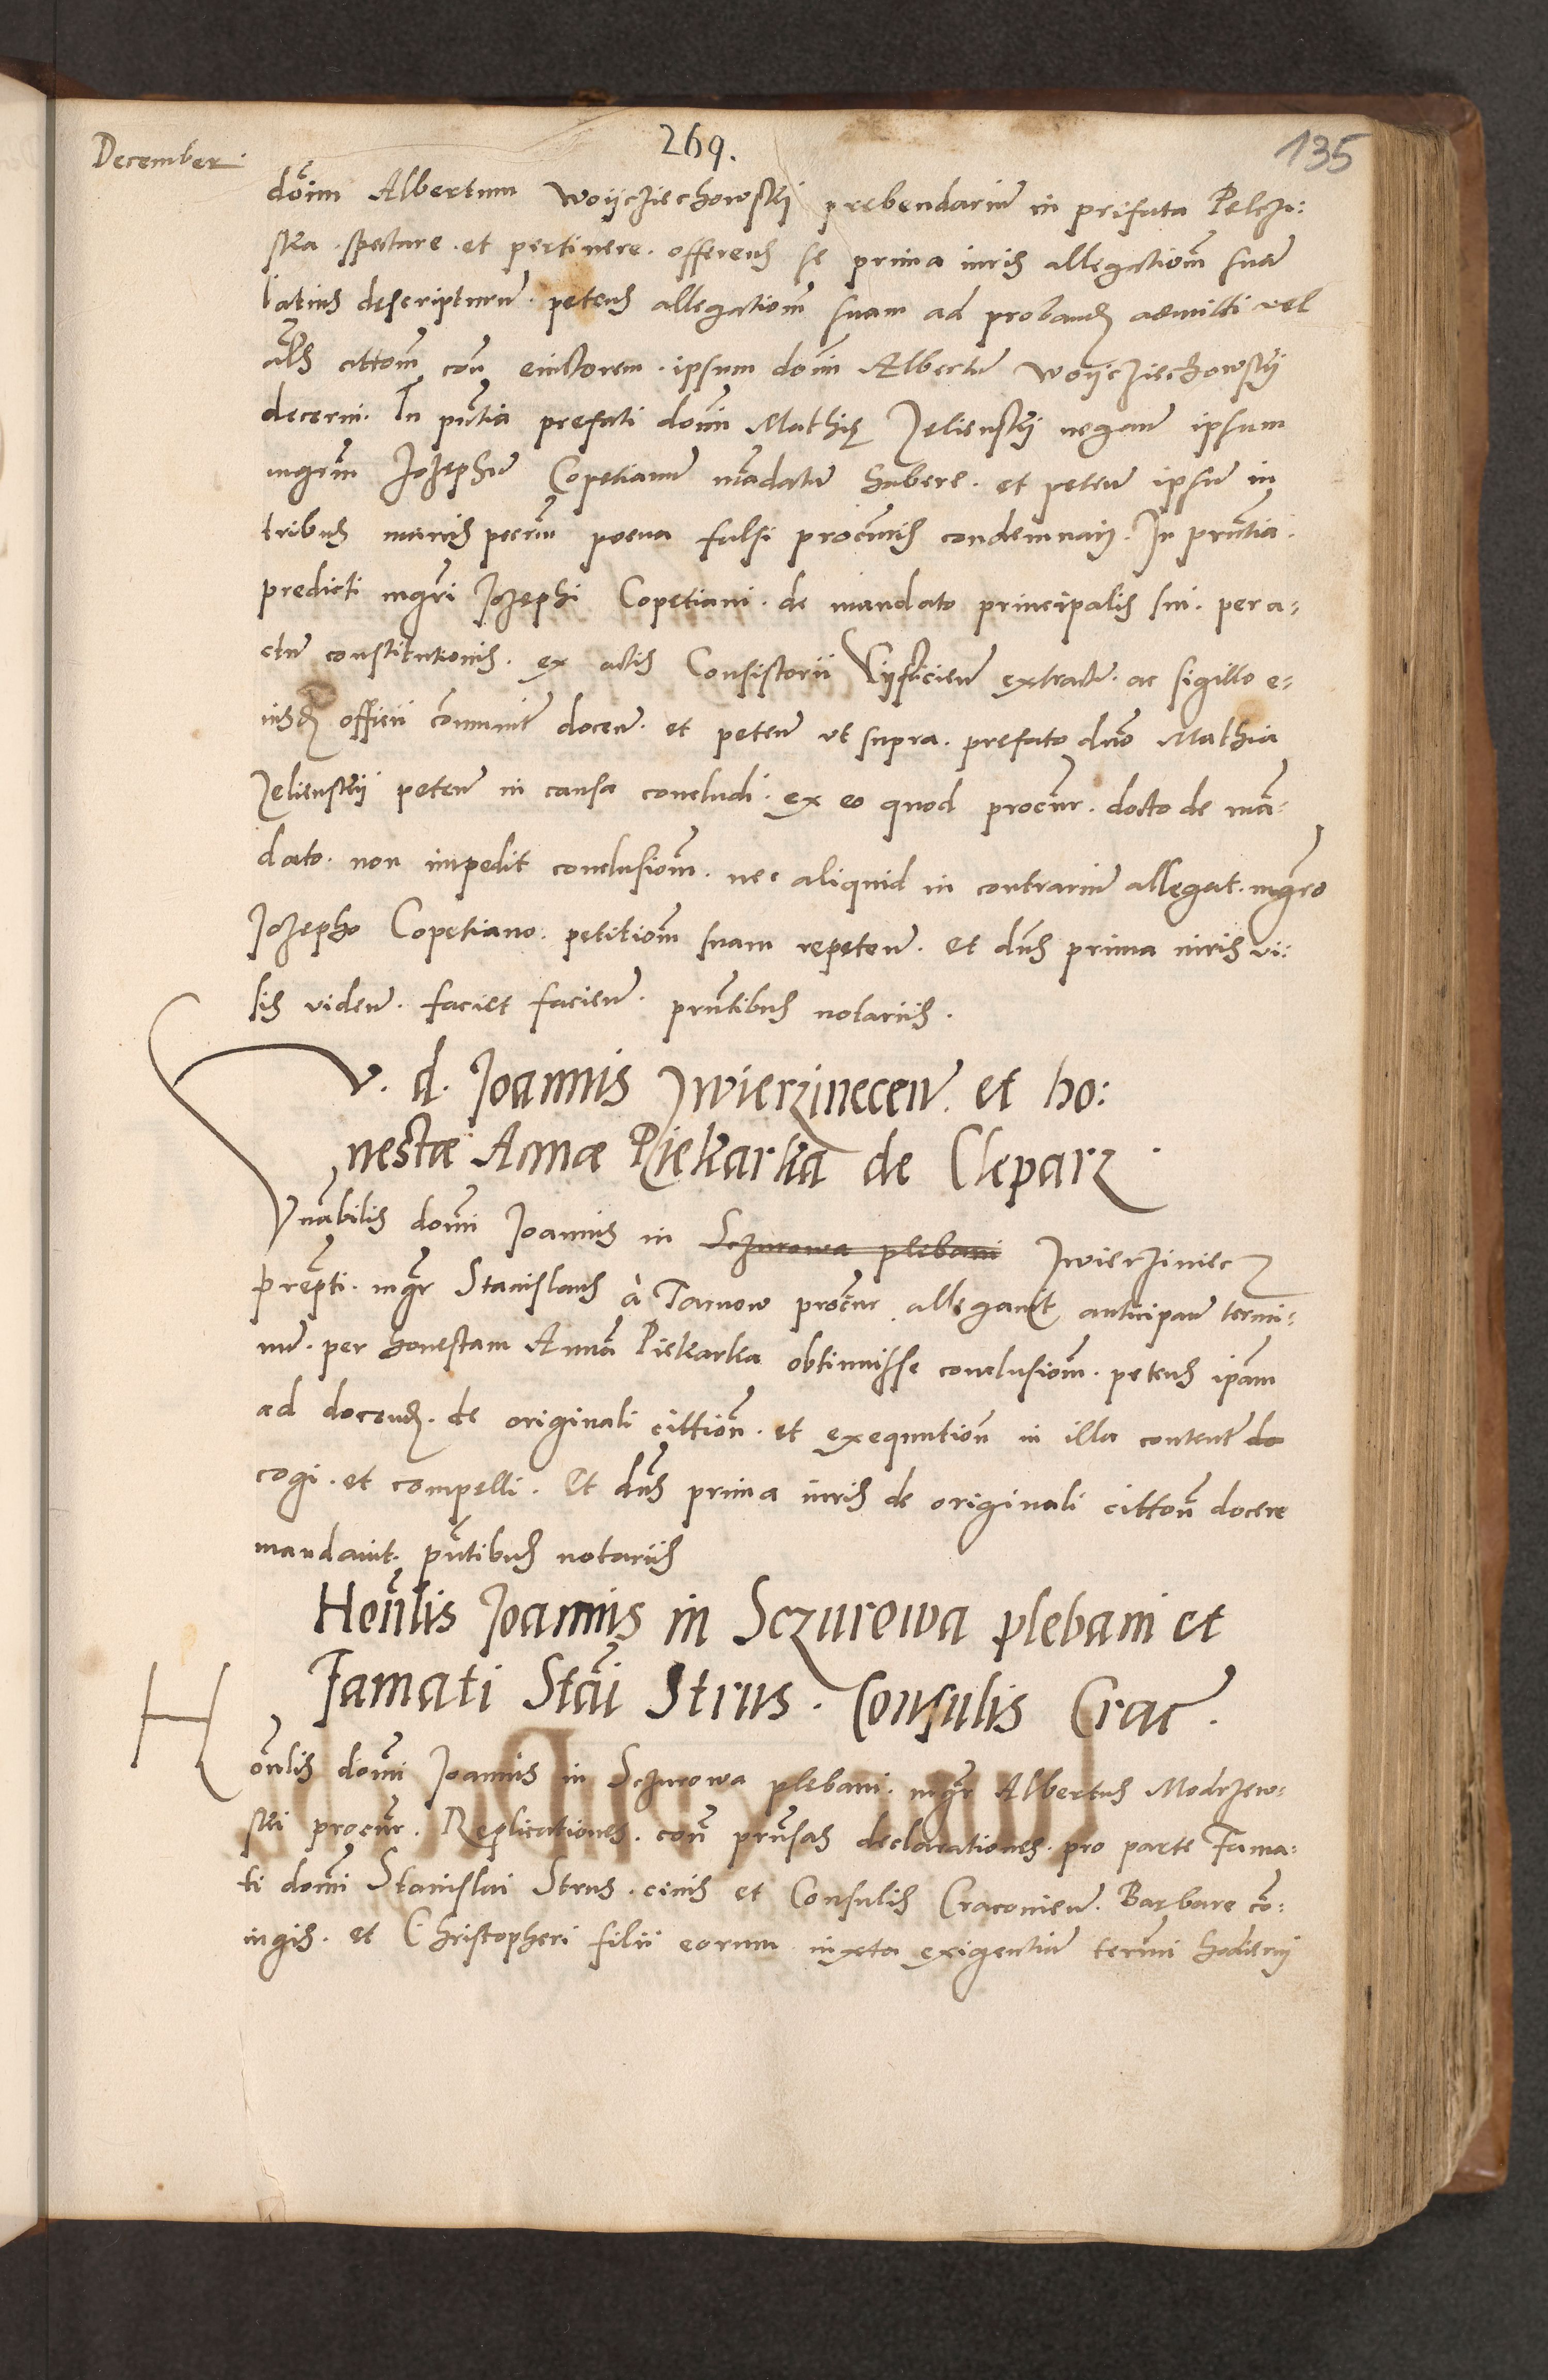 December
269.
135
dom̃ Albertum Woijcziechowskij prebendariũ in prefata Pelczi:
ska. spectare. et pertinere. offerens se prima iuris allegationem̃ suã
latius descripturũ. petens allegationem̃ suam ad probandũ admitti vel
als cittonem̃ con̄ euictorem. ipsum dom̃ Albertũ Woijcziechowskij
decerni. In pñtia prefati domĩ Mathię Zelienskij negantẽ ipsum
mgrm̃ Jozephũ Copetianũ mãdatũ habere. et petentẽ ipsũ in
tribus marcis pecun̄ poena falsi procuris condemnari. In prñtia.
predicti mgri Jozephi Copetiani. de mandato principalis sui. per a-
ctũ constitutionis. ex actis Consistorii extractũ. ac sigillo e-
iusdẽ officii cõmunitũ docen̄. et peten̄ vt supra. prefato dño Mathia
Zelienskij peten̄ in causa concludi. ex eo quod procur. docto de mã-
dato. non impedit conclusionem̃. nec aliquid in contrariũ allegat. mgro
Jozepho Copetiano. petitionem̃ suam repeten̄. Et dñs prima iuris vi:
sis viden̄. faciet facien̄. prñtibus notariis.
V. d. Joannis Zwierzinecen̄. et ho:
nestæ Annæ Piekarka de Cleparz.
Vnãbilis domĩ Joannis in Sczurowa plebani Zwierziniecz
prẽpti. mgr Stanislaus à Tarnow procur allegauit anticipatũ termi-
nũ. per honestam Annã Piekarka obtinuisse conclusionem̃. petens ipam̃
ad docendũ. de originali cittion̄. et exequution̄ in illa contentẽ do
cogi. et compelli. Et dñs prima iuris de originali citton̄ docere
mandauit. pñtibus notariis
Hon̄lis Joannis in Sczurowa plebani et
Famati Stãi Strus. Consulis Crac.
Hon̄lis domĩ Joannis in Sczurowa plebani. mgr Albertus Modrzew-
ski procur. Replicationes. con̄ prñsas declarationes. pro parte Fama:
ti domĩ Stanislai Strus. ciuis et Consulis Cracouien̄. Barbare cõ:
iugis. et Christopheri filii eorum iuxta exigentiã termĩ hodierni